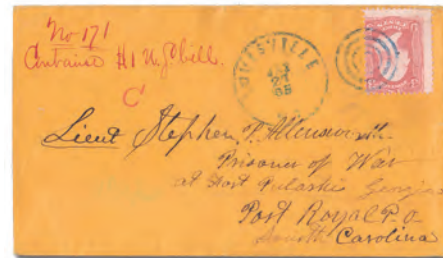 No 171
Contains $1 U.S. bill.
C
LOUISVILLE
27
65
Lieut Stephen F. Allensworth
Prisoner of War
at Fort Pulaski Georgia
Port Royal P.O.
South Carolina